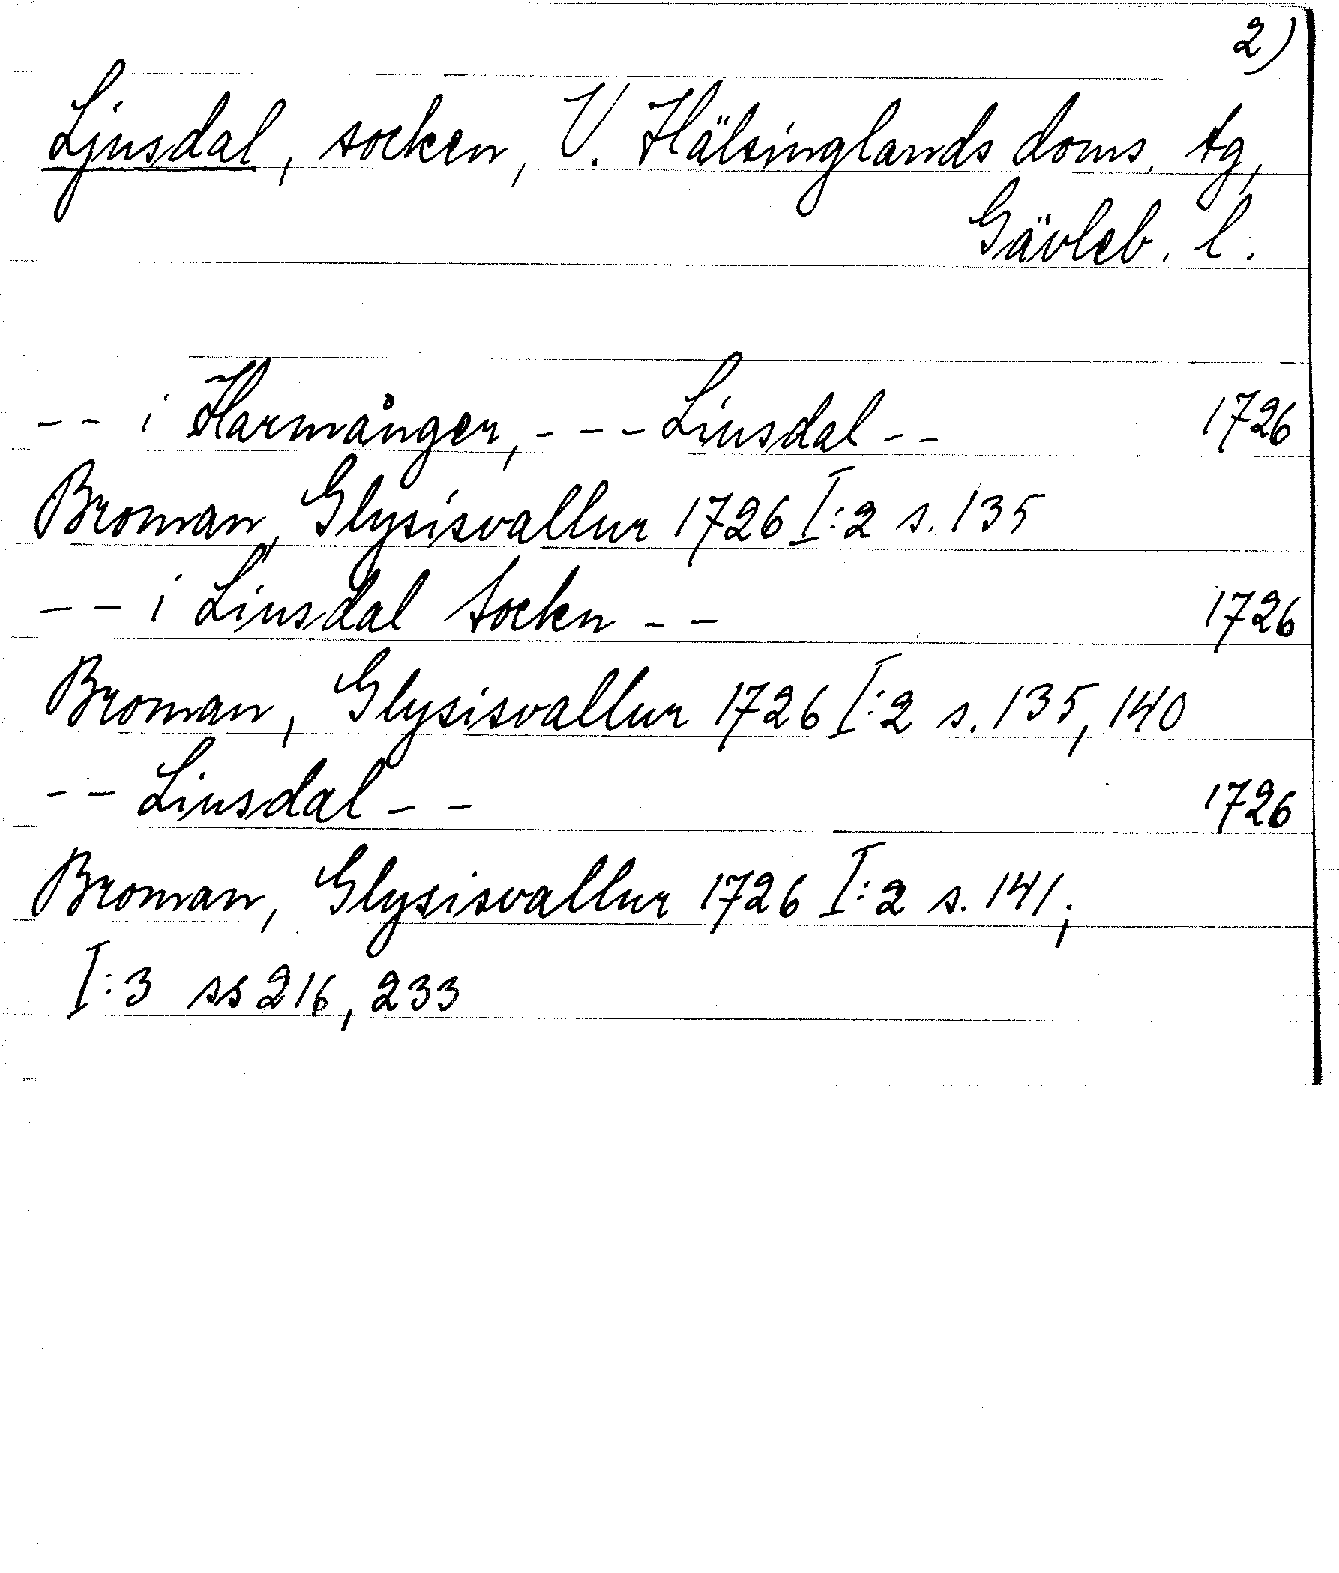 2)
Ljusdal, socken, V. Hälsinglands doms. tg,
Gävleb. l.
-- i Harmånger, --- Liusdal -- 1726
Broman, Glysisvallur 1726 I:2 s. 135
-- i Liusdal Sockn -- 1726
Broman, Glysisvallur 1726 I:2 s. 135, 140
-- Liusdal -- 1726
Broman, Glysisvallur 1726 I:2 s. 141;
I:3 ss 216, 233